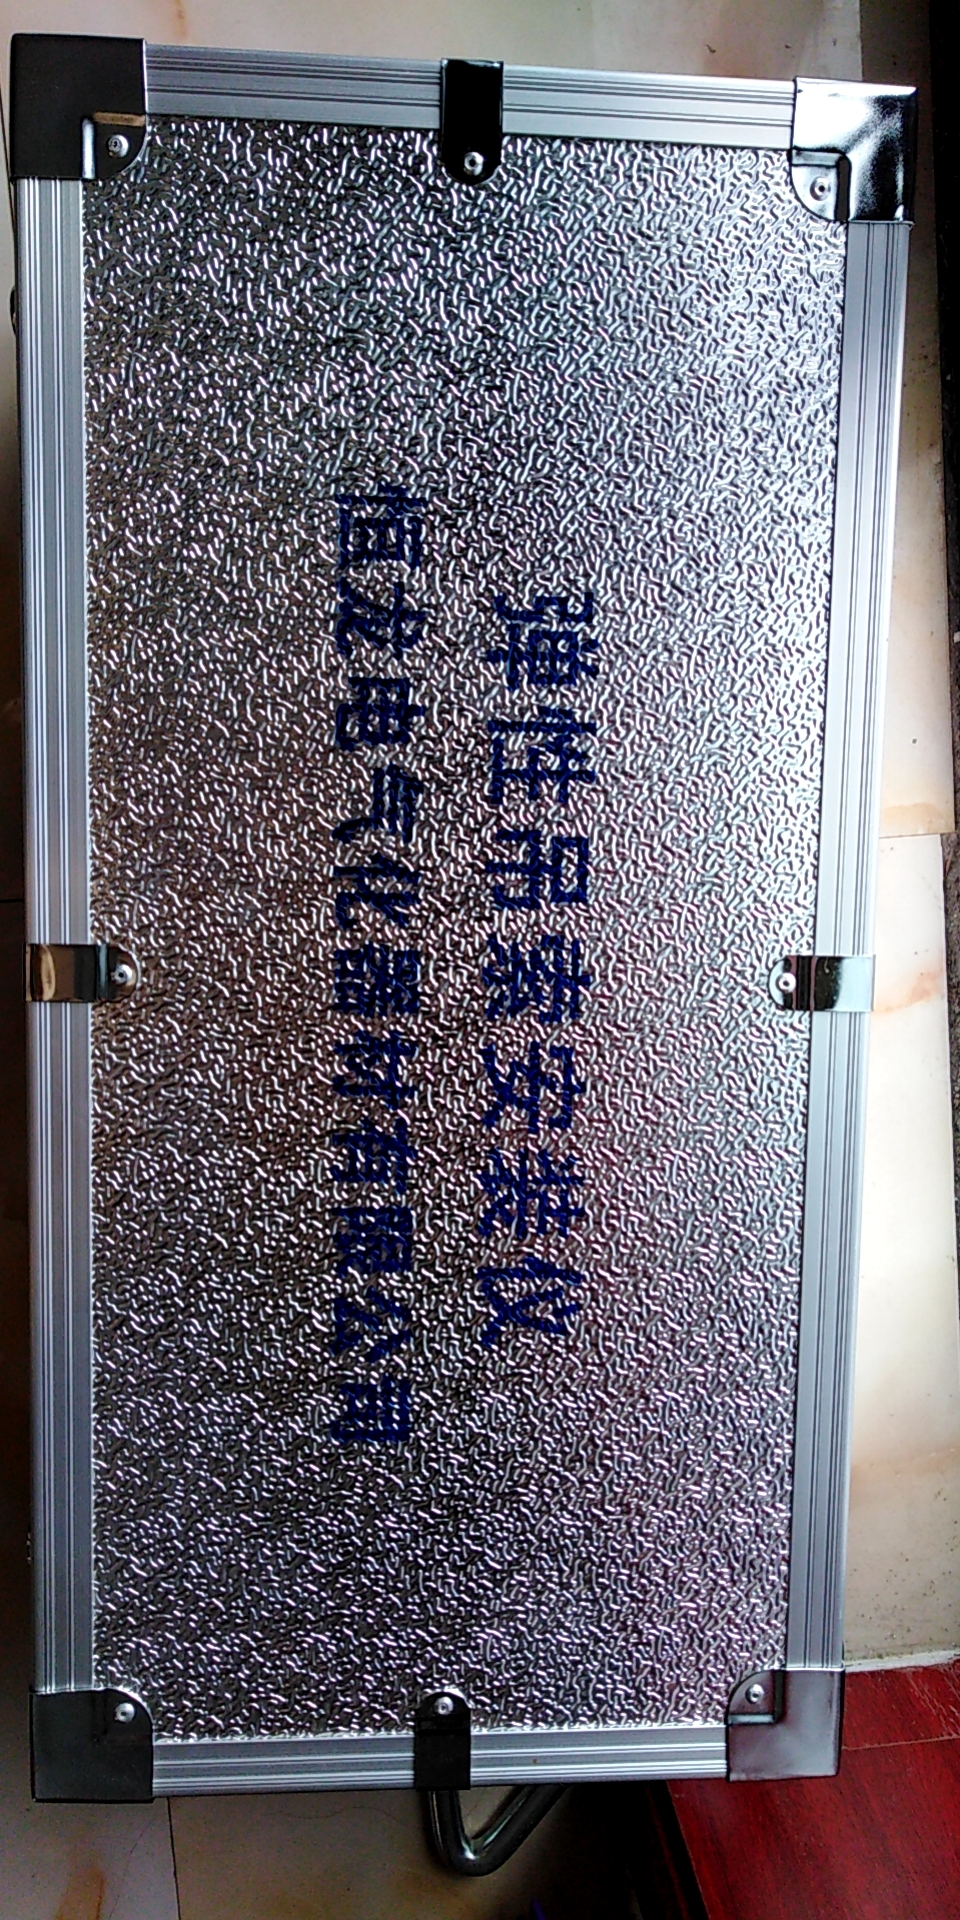 弹性吊索安装仪
恒龙电气化器材有限公司